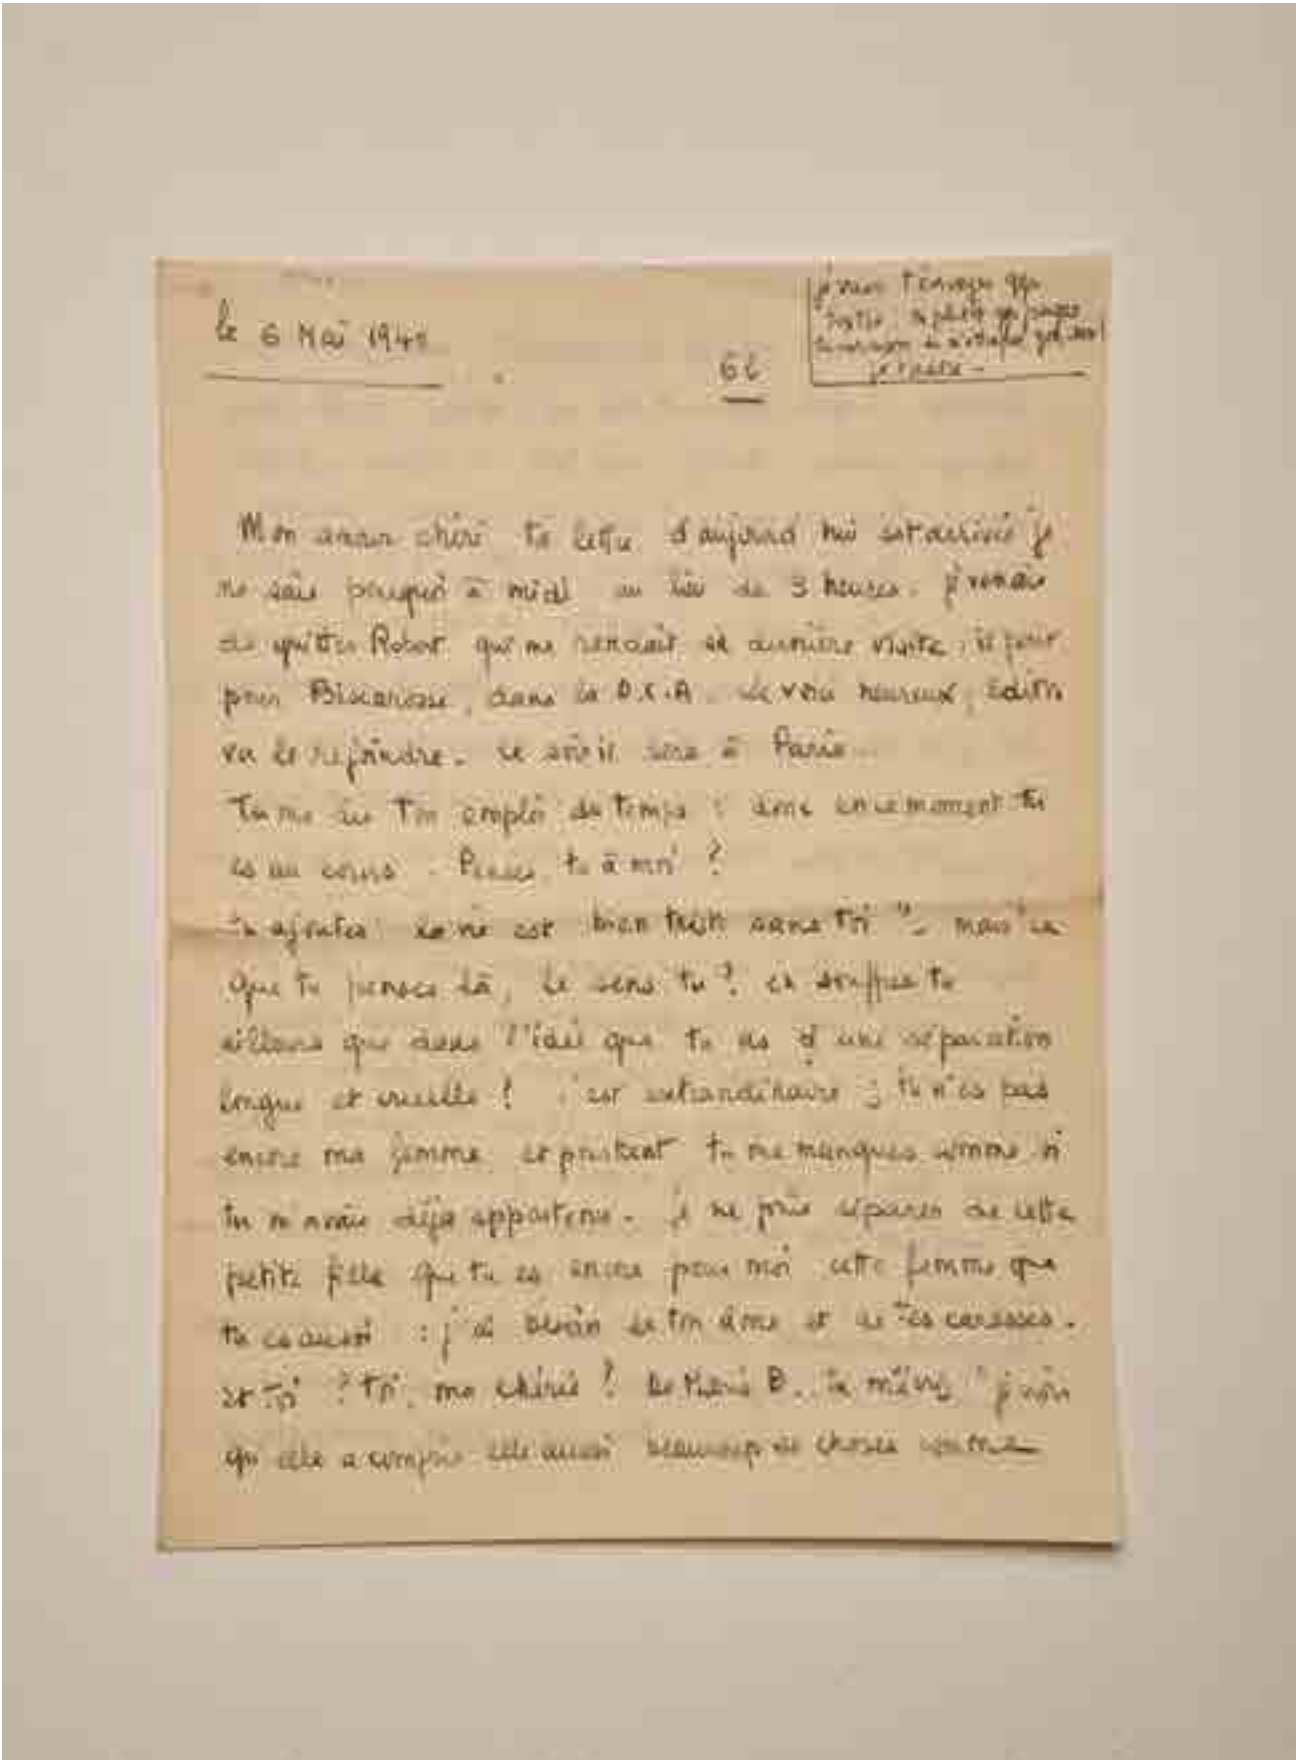 le 6 Mai 1940
62
je viens t'envoyer
j'espère -
Mon amour chéri ta lettre d'aujourd'hui est arrivée je
ne sais pourquoi à midi au lieu de 3 heures. je venais
de quitter Robert qui me rendait sa dernière visite, il part
pour Biscarosse, dans la D.C.A. le voici heureux, Edith
va le rejoindre. ce soir il sera à Paris.
Tu me dis ton emploi du temps : donc en ce moment tu
es au cours. Penses tu à moi ?
tu ajoutes la vie est bien triste sans toi ". mais ce
que tu penses là, le sens tu ? en souffres tu
ailleurs que dans l'idée que tu as d'une séparation
longue et cruelle ! c'est extraordinaire ; tu n'es pas
encore ma femme et pourtant tu me manques comme si
tu m'avais déjà appartenu. je ne puis séparer de cette
petite fille que tu es encore pour moi cette femme que
tu es aussi : j'ai besoin de ton âme et de tes caresses.
et toi ? toi, ma chérie ? De B. tu m'écris, " je vois
qu'elle a compris elle aussi beaucoup de choses comme